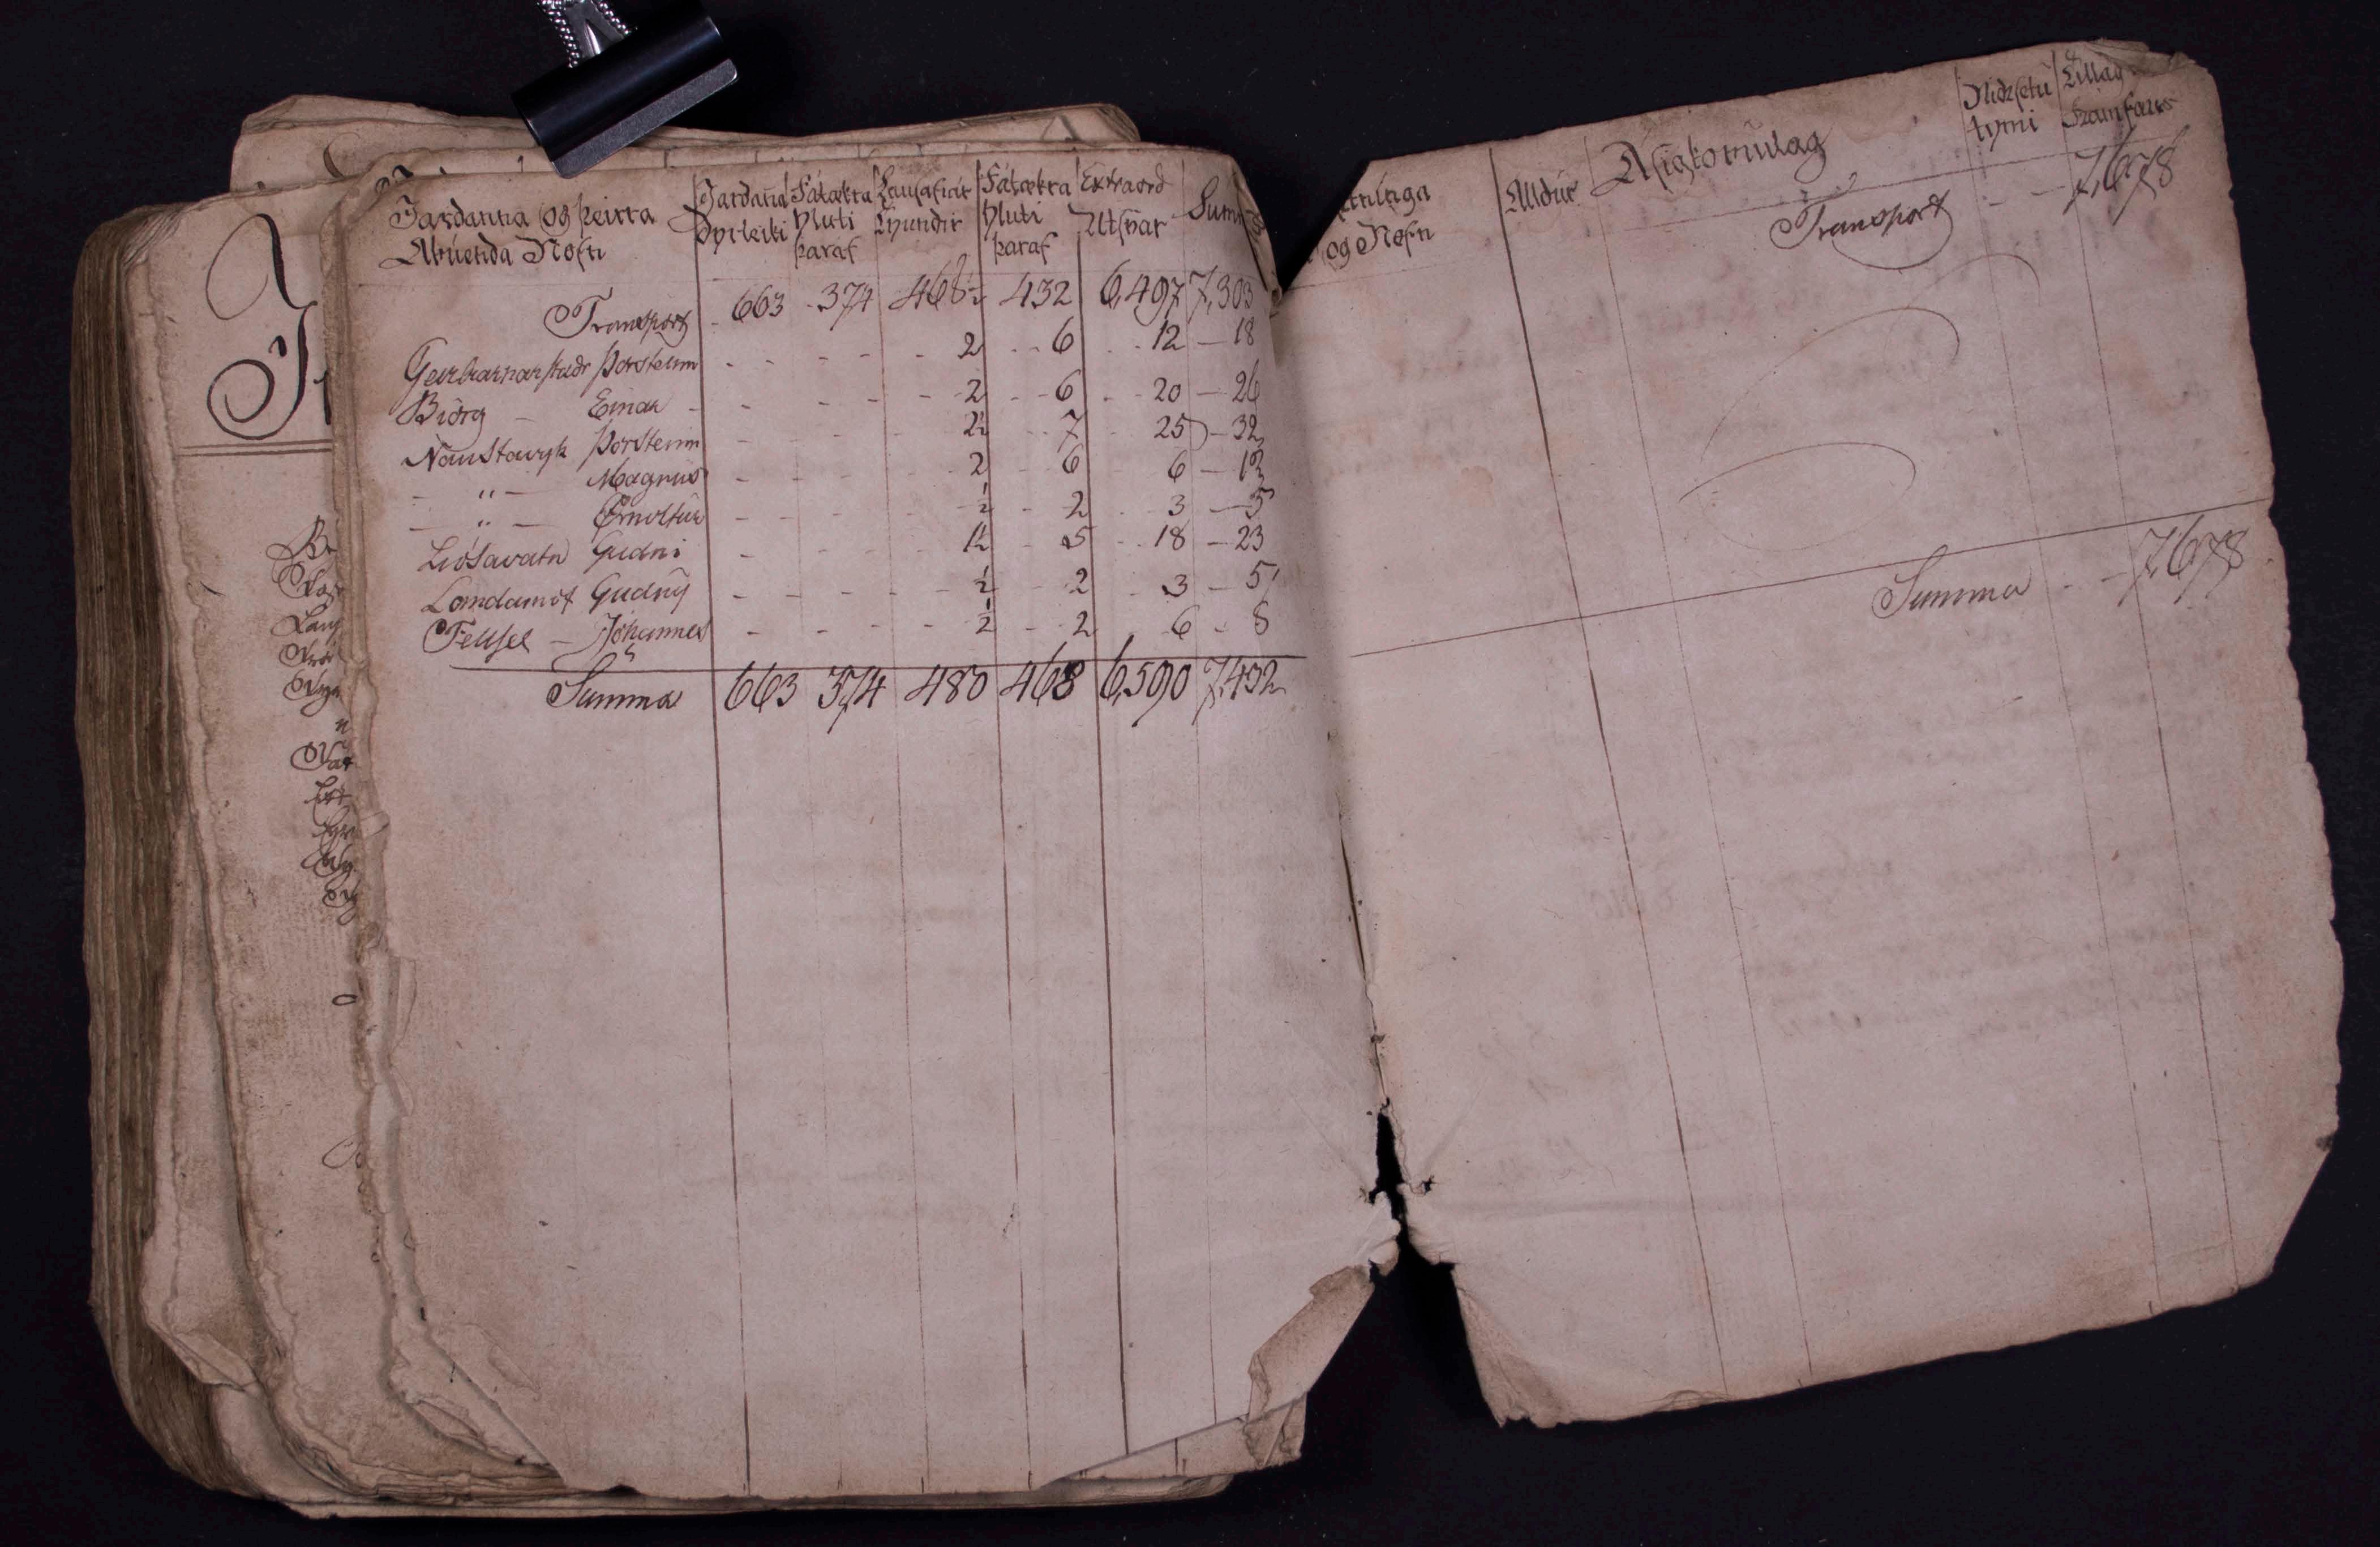 Jardanna og þeirra Abúenda Nöfn | Jardanna Dyrleiki | Fátækra Hluti þaraf | Lausafiár Tyundir | Fátækra Hluti þaraf | Extraord Utsvar | Sum
Transport 663 374 468½ 432 6,497 7,303
Geirbiarnarstadr Þorsteinn 2 6 12 18
Biörg Einar 2 6 20 26
Naustavyk Þorsteinn 2½ 7 25 32
" Magnus 2 6 6 12
" ½ 2 3 5
Liósavatn Gudni 1½ 5 18 23
Gudný ½ 2 3 5
Fellsel Jóhannes ½ 2 6 8
Summa 663 374 480 468 6,590 7,432
og Nöfn | Alldur | Ásigkomulag | Nidrsetu tymi | Tillag Framfærs
Transport 7,678
Summa 7,678